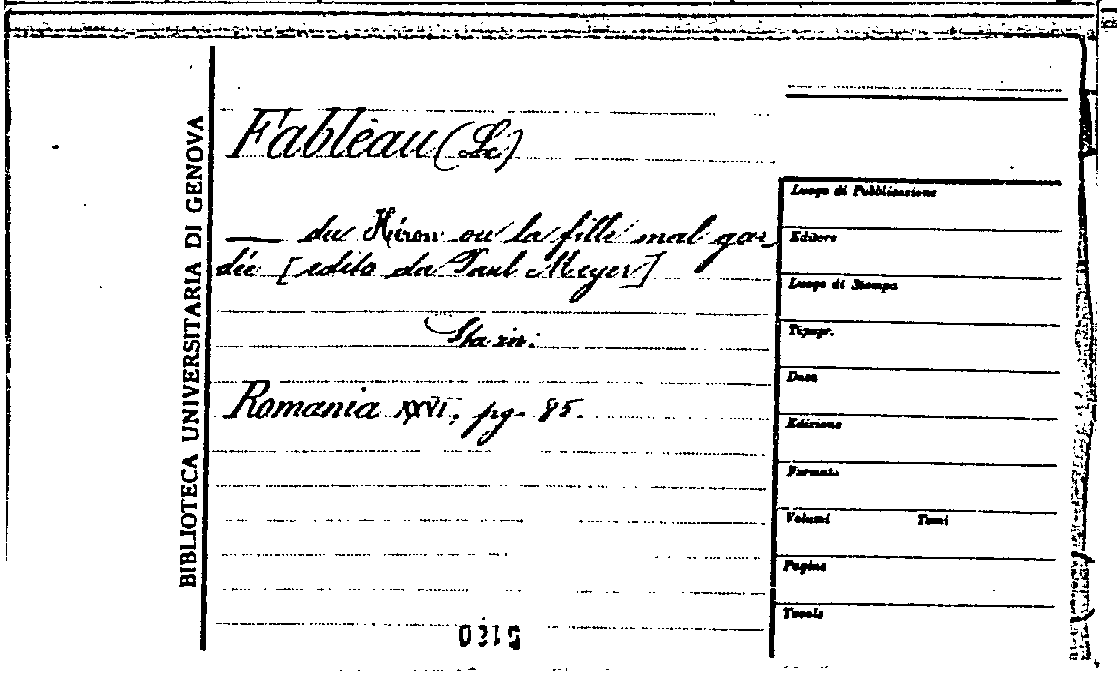 BIBLIOTECA UNIVERSITARIA DI GENOVA
Fableau (Le)
— du Héron ou la fille mal gar
dée [edito da Paul Meyer]
Sta in:
Romania XXVI, pg. 85.
Luogo di Pubblicazione
Editore
Luogo di Stampa
Tipogr.
Data
Edizione
Formato
Volumi Tomi
Pagine
Tavole